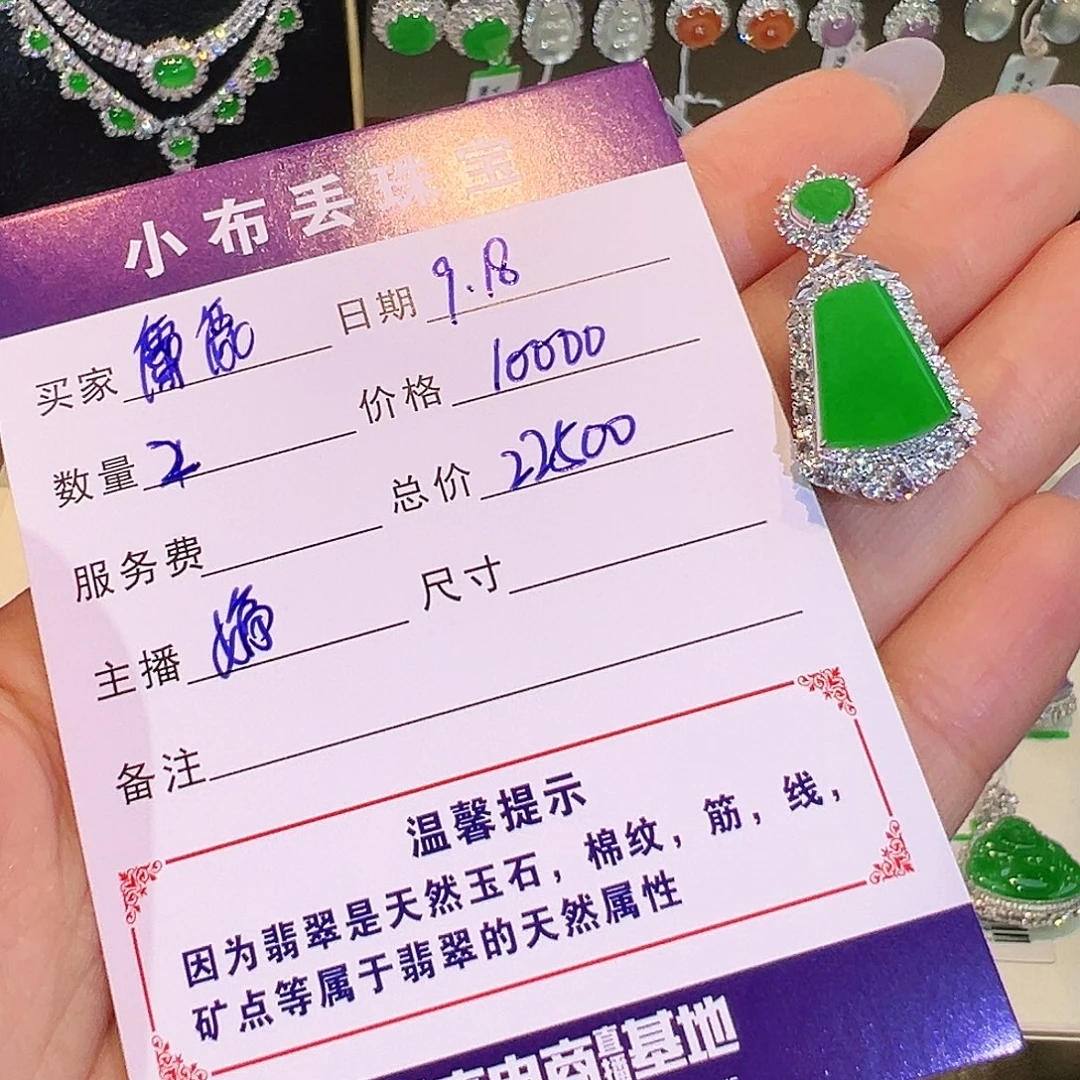 小布丢珠宝
买家 日期 9.18
数量 2 价格 10000
服务费 总价 22500
主播 嫡 尺寸
备注
温馨提示
因为翡翠是天然玉石，棉纹，筋，线，
矿点等属于翡翠的天然属性
电商直播基地